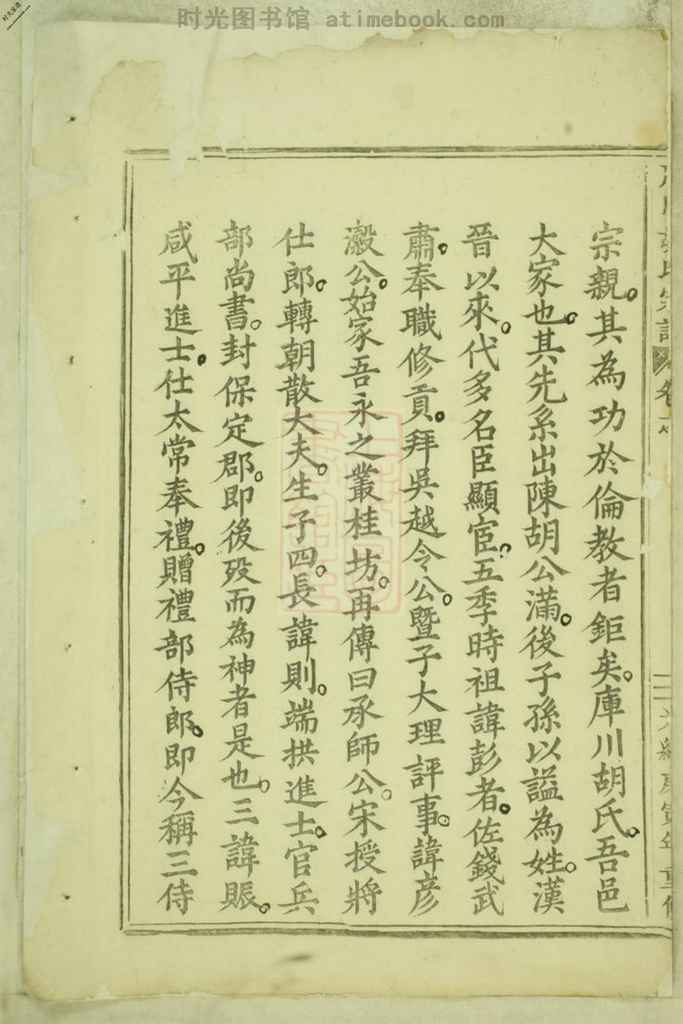 时光图书馆 atimebook.com
宗親。其為功於倫教者鉅矣。庫川胡氏。吾邑
大家也。其先系出陳胡公滿。後子孫以謚為姓。漢
晉以來。代多名臣顯宦。五季時祖諱彭者。佐錢武
肅。奉職修貢。拜吳越令公。暨子大理評事。諱彦
瀫公。始家吾永之叢桂坊。再傳曰承師公。宋授將
仕郎。轉朝散大夫。生子四。長諱則。端拱進士。官兵
部尚書。封保定郡。即後殁而為神者是也。三諱賑。
咸平進士。仕太常奉禮。贈禮部侍郎。即今稱三侍